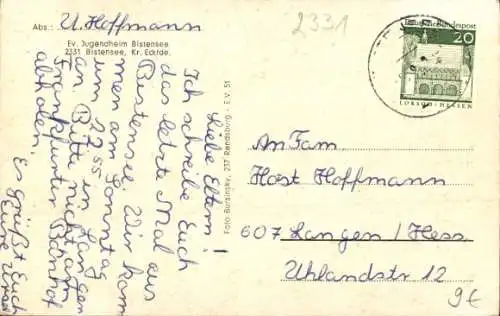 Abs.: U. Hoffmann
Ev. Jugendheim Bistensee
2331 Bistensee, Kr. Eckfde.
2331
Deutsche Bundespost
20
LORSCH · HESSEN
Liebe Eltern!
Ich schreibe Euch
das letzte Mal aus
Bistensee. Wir kom
men am Sonntag
um 22⁵⁵ in Langen
an. Bitte nicht am
Frankfurter Bahnhof
abholen.
Es grüßt Euch
Eure
Foto Bursinsky, 237 Rendsburg - E.V. 51
An Fam.
Horst Hoffmann
607 Langen / Hess.
Uhlandstr 12
9€